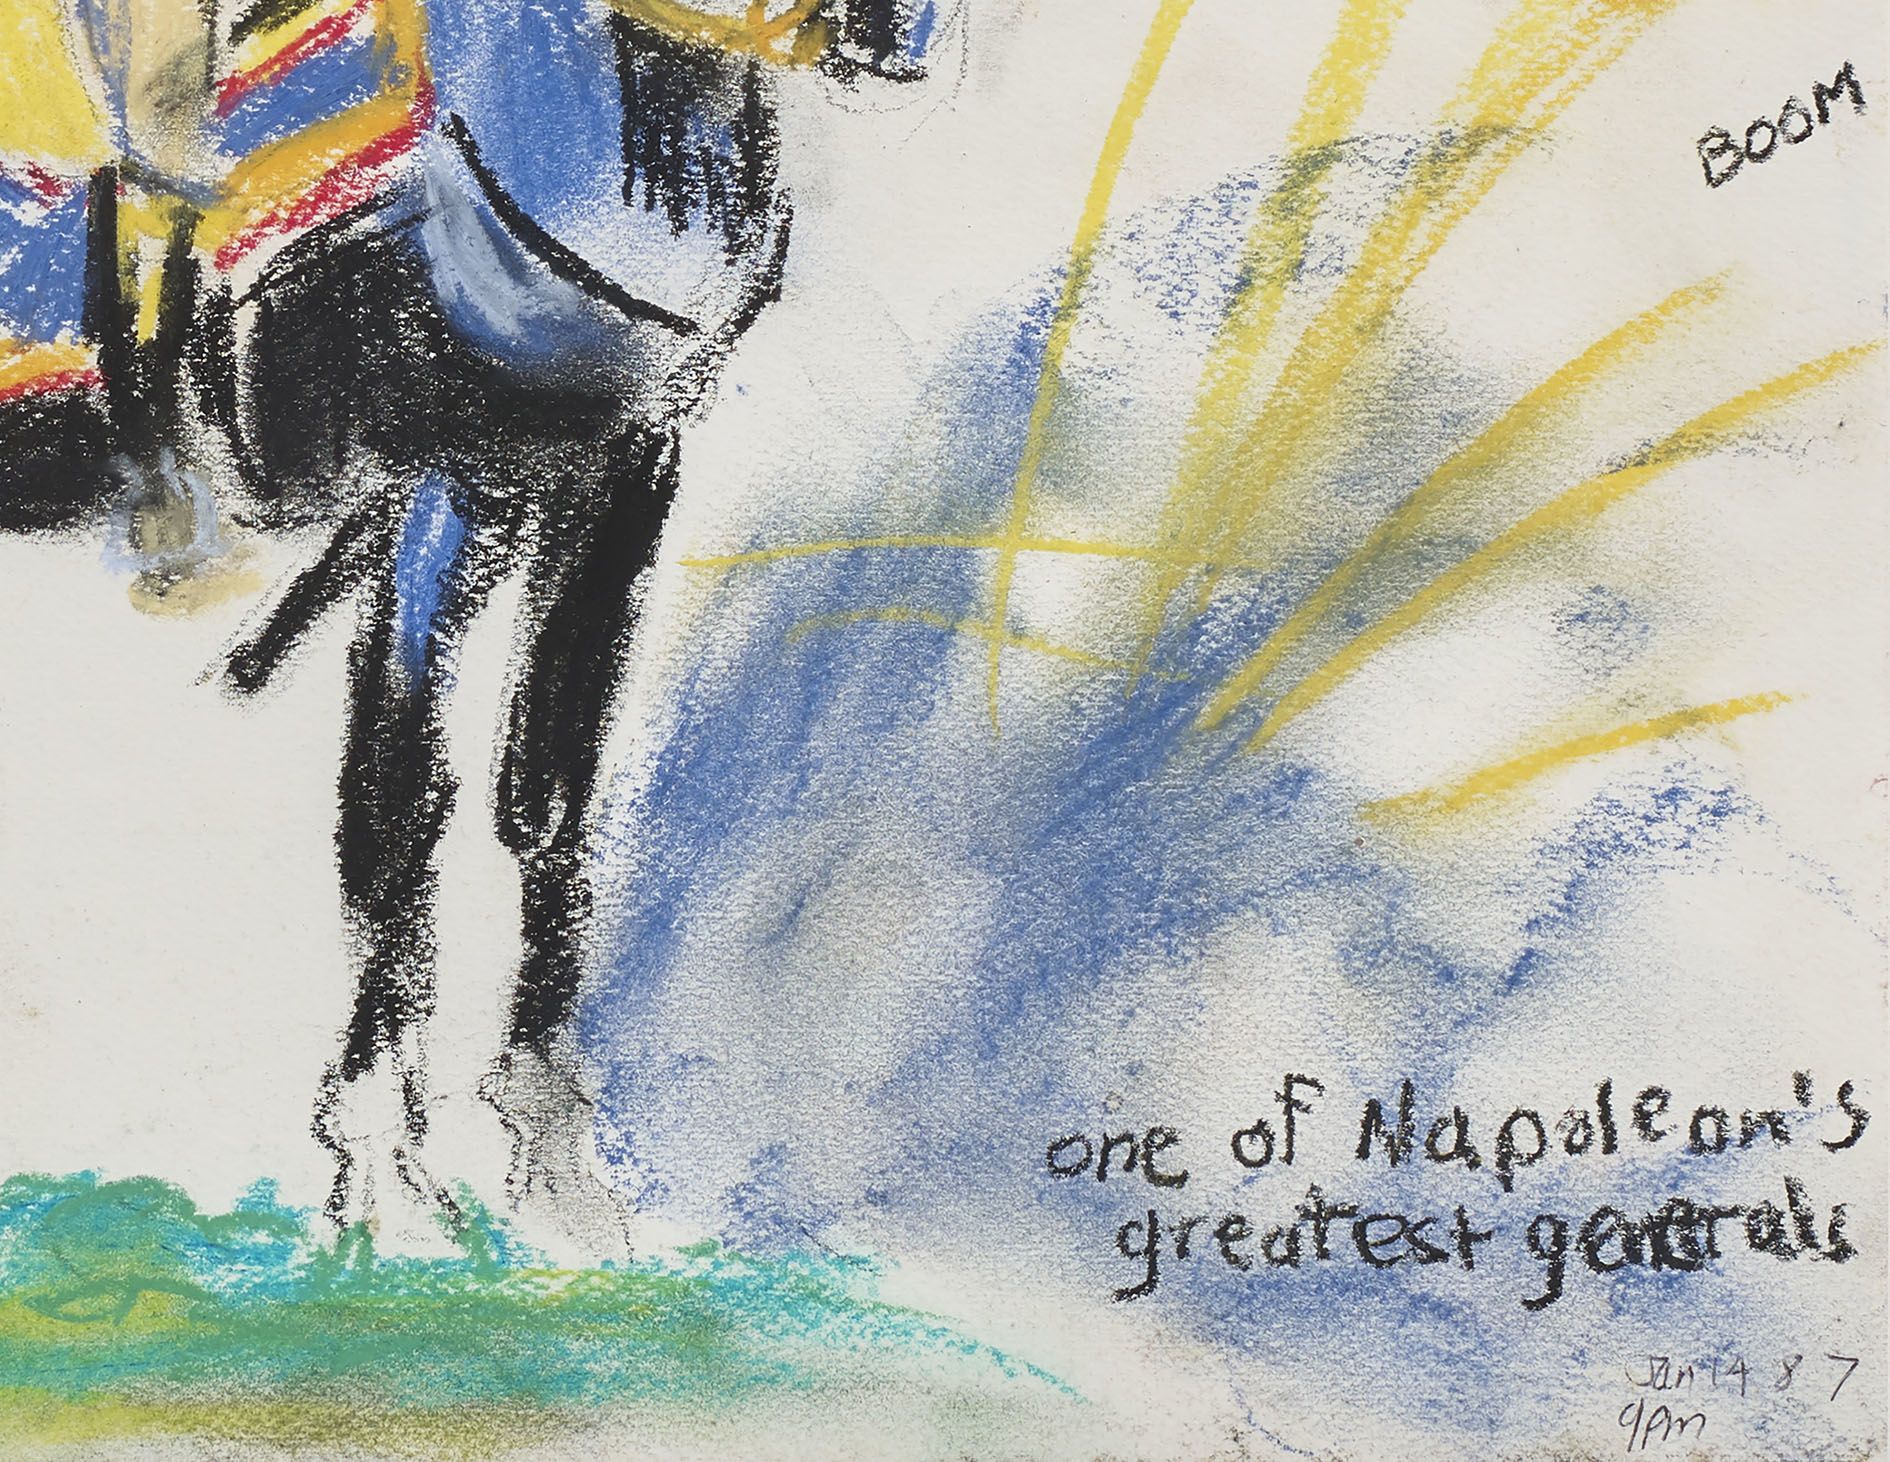 BOOM
one of Napoleon's
greatest generals
Jan 14 87
9pm